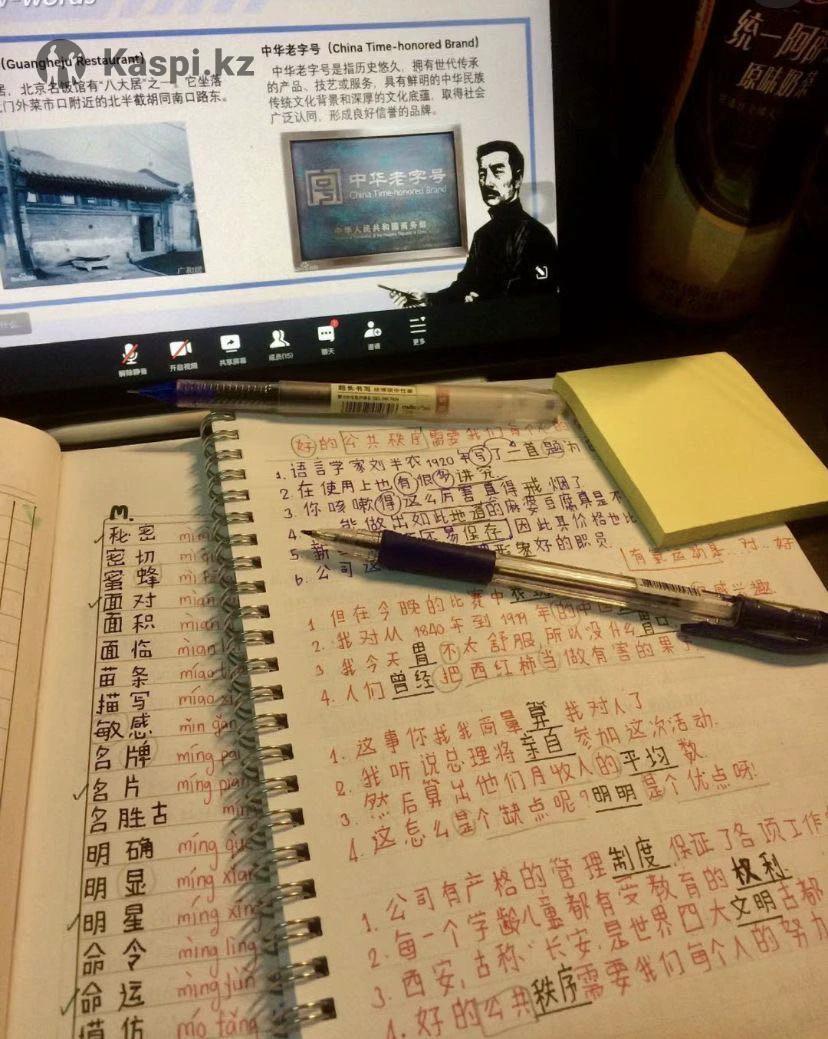 y-words
Kaspi.kz
(Guangheju Restaurant)
居，北京名饭馆有“八大居”之一。它坐落
门外菜市口附近的北半截胡同南口路东。
中华老字号（China Time-honored Brand）
中华老字号是指历史悠久，拥有世代传承
的产品、技艺或服务，具有鲜明的中华民族
传统文化背景和深厚的文化底蕴，取得社会
广泛认同，形成良好信誉的品牌。
中华老字号
China Time-honored Brand
中华人民共和国商务部
广和居
解除静音
开启视频
共享屏幕
成员(15)
聊天
邀请
更多
统一阿
原味奶茶
超长书写
M.
秘密
密切
蜜蜂
面对 miàn
面积 miàn
面临 miàn
苗条
描写
敏感 mǐn gǎn
名牌 míng pái
名片 míng piàn
名胜古
明确 míng què
明显 míng xiǎn
明星 míng xīng
命令 mìng lìng
命运 mìng yùn
模仿 mó fǎng
好的公共秩序需要我们每个人的
1. 语言学家刘半农1920年写了一首题为
2. 在使用上也有很多讲究
3. 你咳嗽得这么厉害直得戒烟了
4. 能做出如此地道的麻婆豆腐真是不
5. 新 不易保存 因此其价格也比
6. 公司 形象好的职员.
1. 但在今晚的比赛中 感兴趣.
2. 我对从1840年到1919年的中国
3. 我今天胃不太舒服所以没什么胃口
4. 人们曾经把西红柿当做有害的果子
1. 这事你找我商量算找对人了
2. 我听说总理将亲自参加这次活动.
3. 然后算出他们月收入的平均数
4. 这怎么是个缺点呢?明明是个优点呀!
1. 公司有严格的管理制度 保证了各项工作
2. 每一个学龄儿童都有受教育的权利
3. 西安,古称“长安,是世界四大文明古都
4. 好的公共秩序需要我们每个人的努力